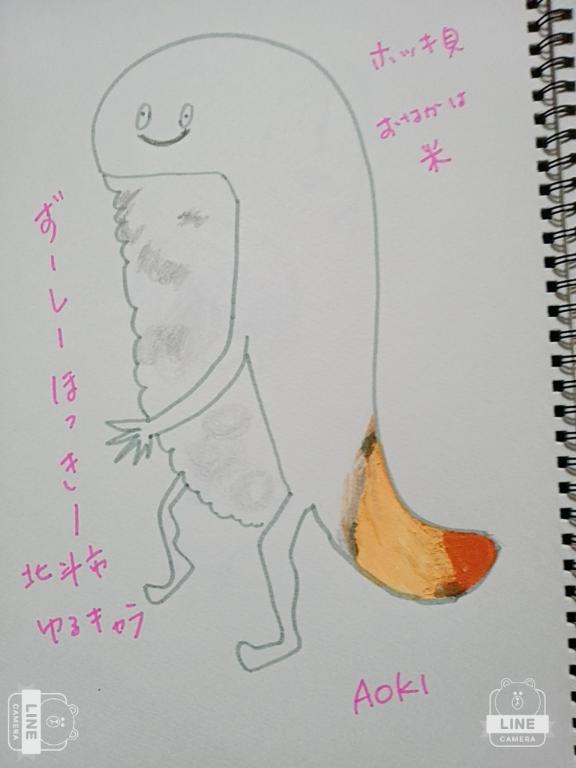 ホッキ貝
おなかは
米
ずーしーほっきー
北斗市
ゆるキャラ
AOKI
LINE
CAMERA
LINE
CAMERA